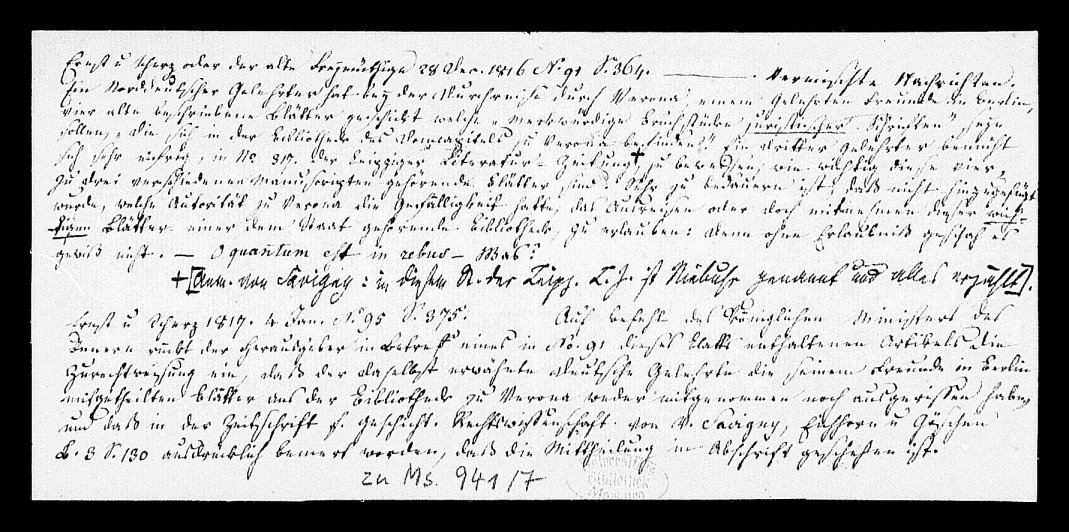 Ernst u Scherz oder der alte Freymüthige 28 Dec. 1816 No. 91 S. 364. ——— Vermischte Nachrichten.
Ein Norddeutscher Gelehrter hat bey der Durchreise durch Verona, einem Gelehrten Freunde in Berlin,
vier alte beschriebene Blätter geschickt welche „merkwürdige Bruchstücke juristischer Schriften" seyn
sollen, „die sich in der Bibliothek des Domcapitels zu Verona befinden." Ein dritter Gelehrter bemüht
sich sehr eifrig, in No 317. der Leipziger Literatur-Zeitung + zu beweisen, wie wichtig diese vier,
zu drei verschiedenen Manuscripten gehörende Blätter sind. Sehr zu bedauern ist, daß nicht hinzugefügt
wurde, welche Autorität zu Verona die Gefälligkeit hatte, das Ausreißen oder doch mitnehmen dieser wich-
tigen Blätter einer dem Staat gehörende Bibliothek, zu erlauben: denn ohne Erlaubniß geschah es
gewiß nicht. — O quantum est in rebus — Was?
+ [Anm. von Savigny: in diesem St. der Leipz. L. Z. ist Niebuhr genannt und alles erzählt].
Ernst u Scherz 1817. 4 Jan. No. 95 S. 375. Auf Befehl des Königlichen Ministers des
Innern rückt der Herausgeber in Betreff eines in No. 91 dieses Blatts enthaltenen Artikels die
Zurechtweisung ein, daß der daselbst erwähnte deutsche Gelehrte die seinem Freunde in Berlin
mitgetheilten Blätter aus der Bibliothek zu Verona weder mitgenommen noch ausgerissen habe,
und daß in der Zeitschrift f. geschichtl. Rechtswissenschaft von v. Savigny, Eichhorn u Göschen
B. 3 S. 130 ausdrücklich bemerkt worden, daß die Mittheilung in Abschrift geschehen ist.
zu Ms. 941/7
Bibliothek